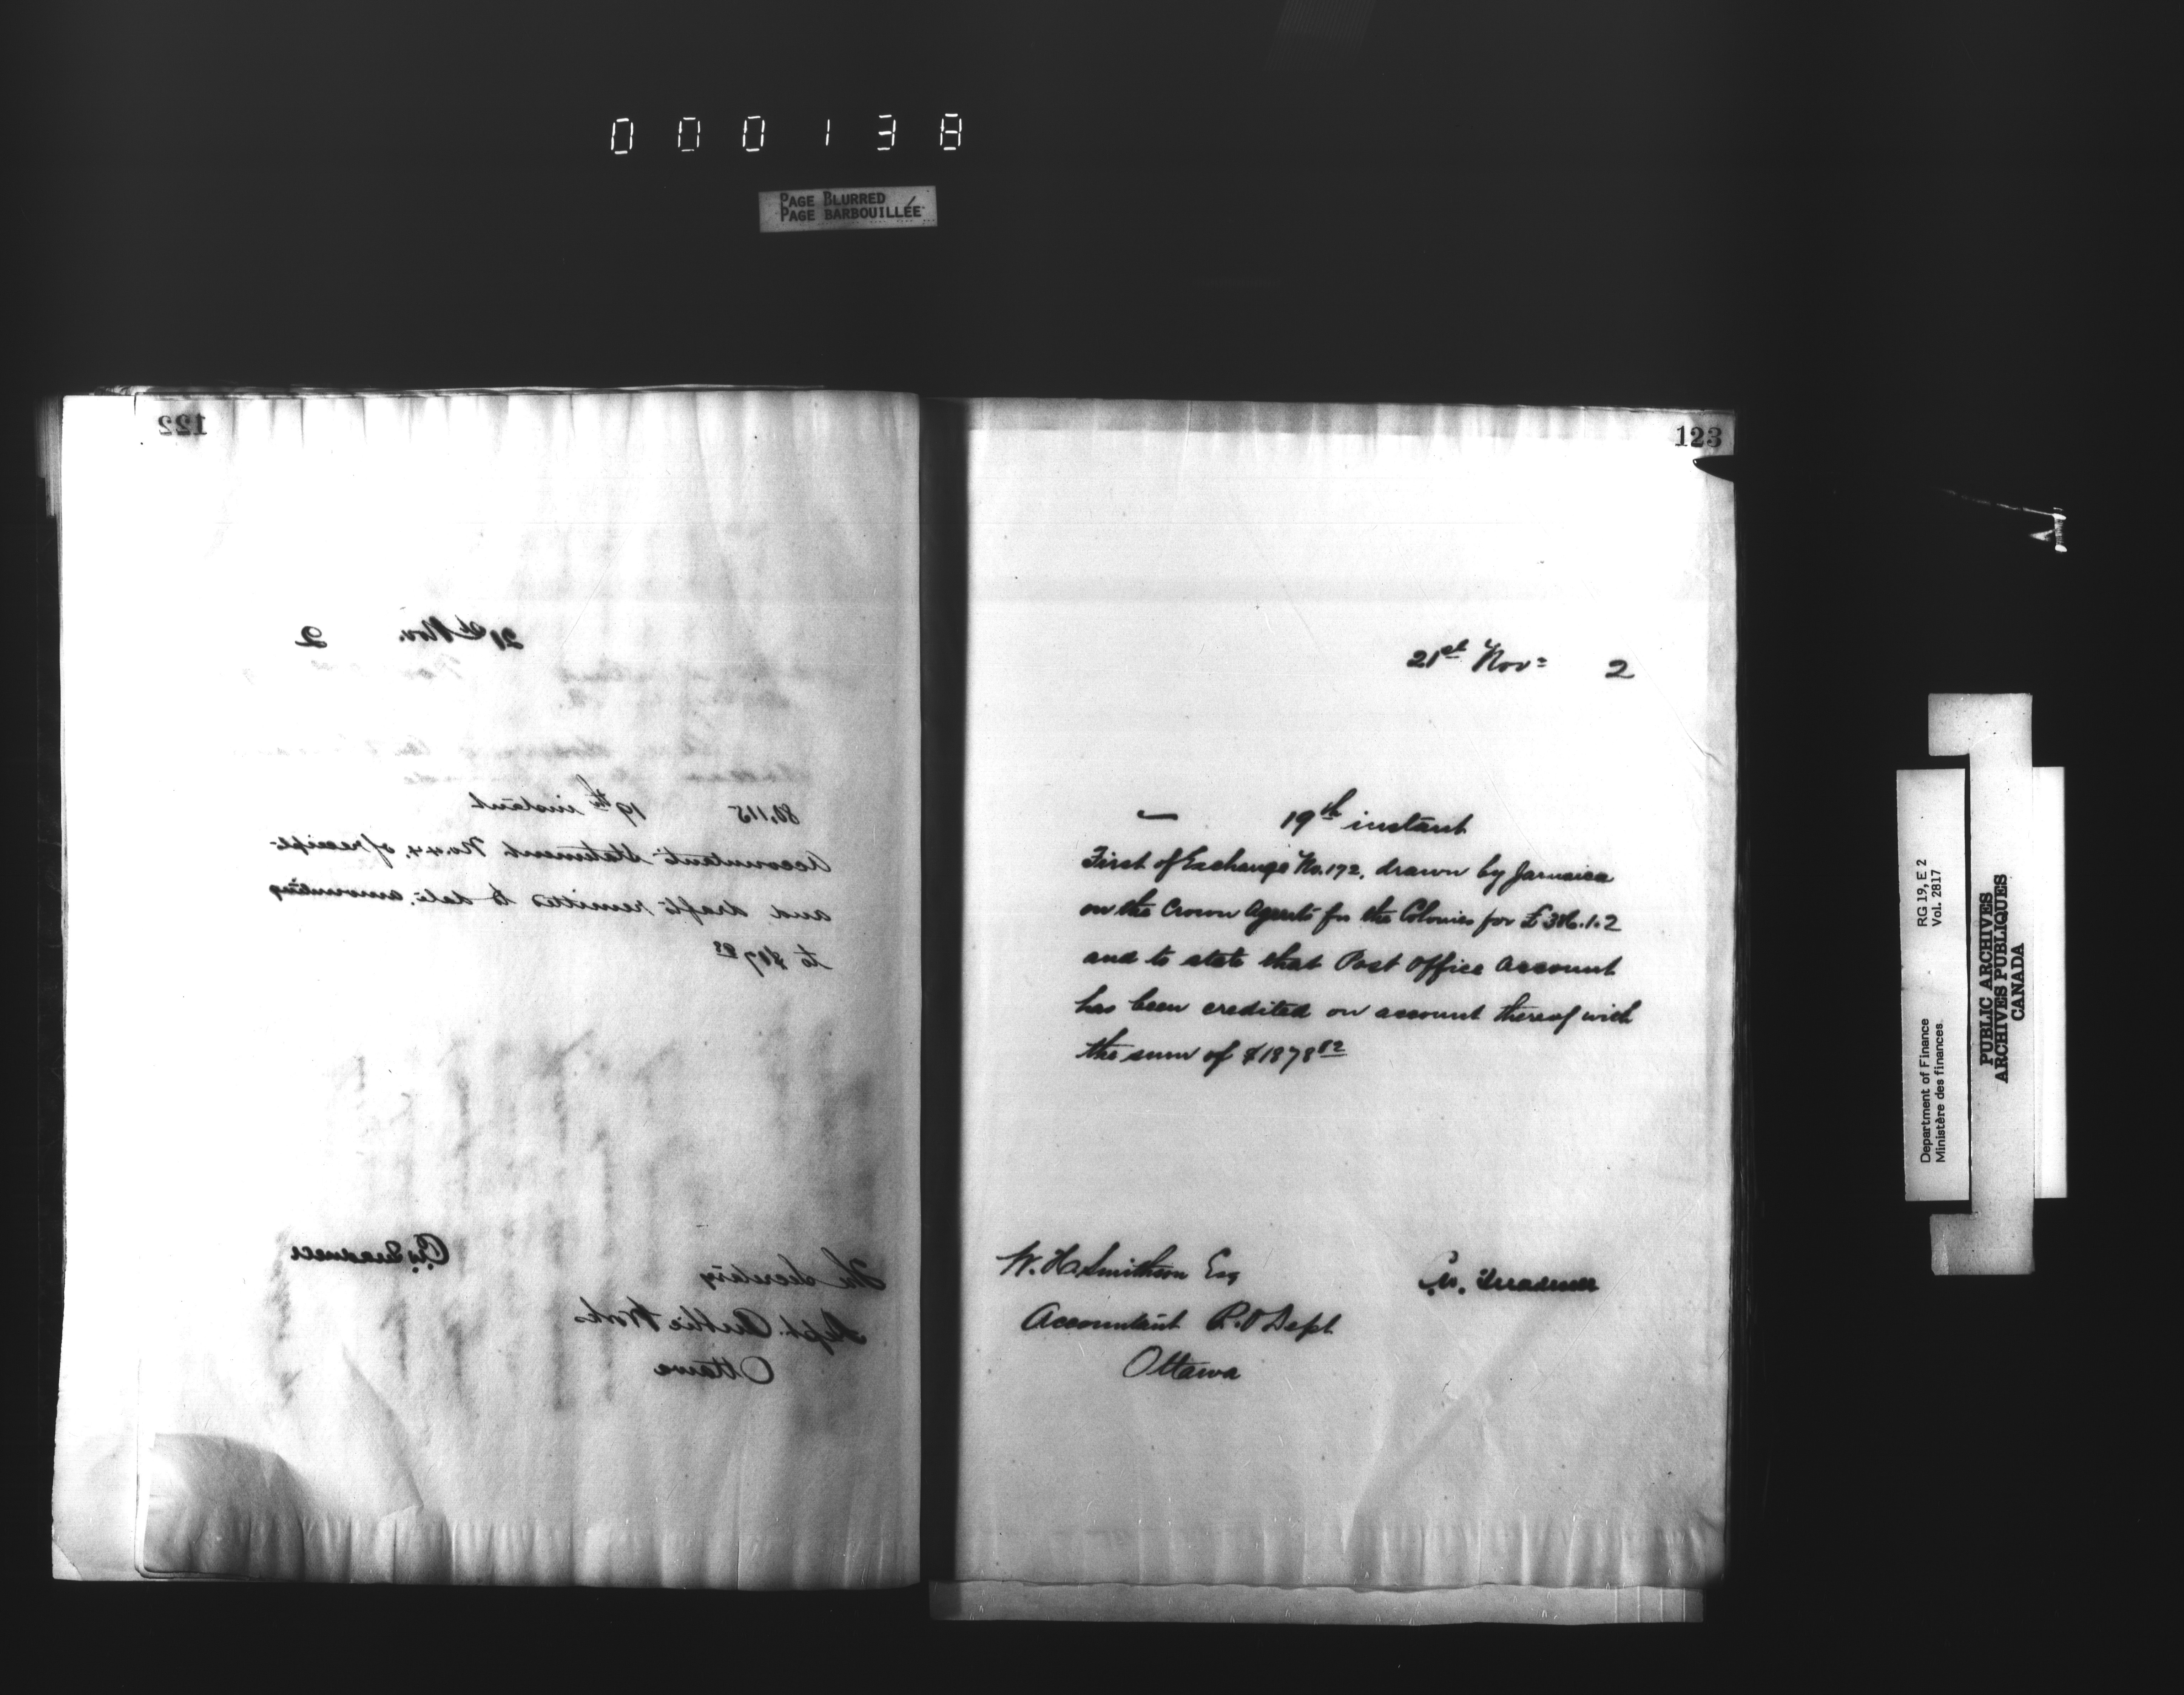 000138
PAGE BLURRED
PAGE BARBOUILLÉE
122
21st Nov. 2
80,115 19th instant
Accountant's Statement No. 44, of receipts
and drafts remitted to date, amounting
to
The Secretary
Dept. Public Works
Ottawa
123
21st Nov: 2
— 19th instant
First of Exchange No. 172, drawn by Jamaica
on the Crown Agents for the Colonies for
and to state that Post Office Account
has been credited on account thereof with
the sum of $1878 82
W. H. Smithson Esq
Accountant P.O Dept
Ottawa
Department of Finance
Ministère des finances
RG 19, E 2
Vol. 2817
PUBLIC ARCHIVES
ARCHIVES PUBLIQUES
CANADA